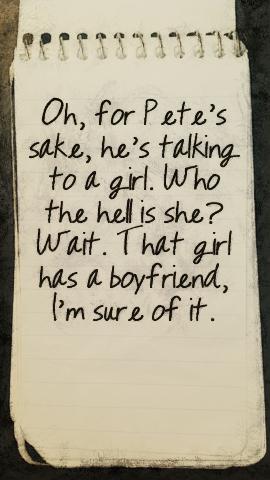 Oh, for Pete's
sake, he's talking
to a girl. Who
the hell is she?
Wait. That girl
has a boyfriend,
I'm sure of it.